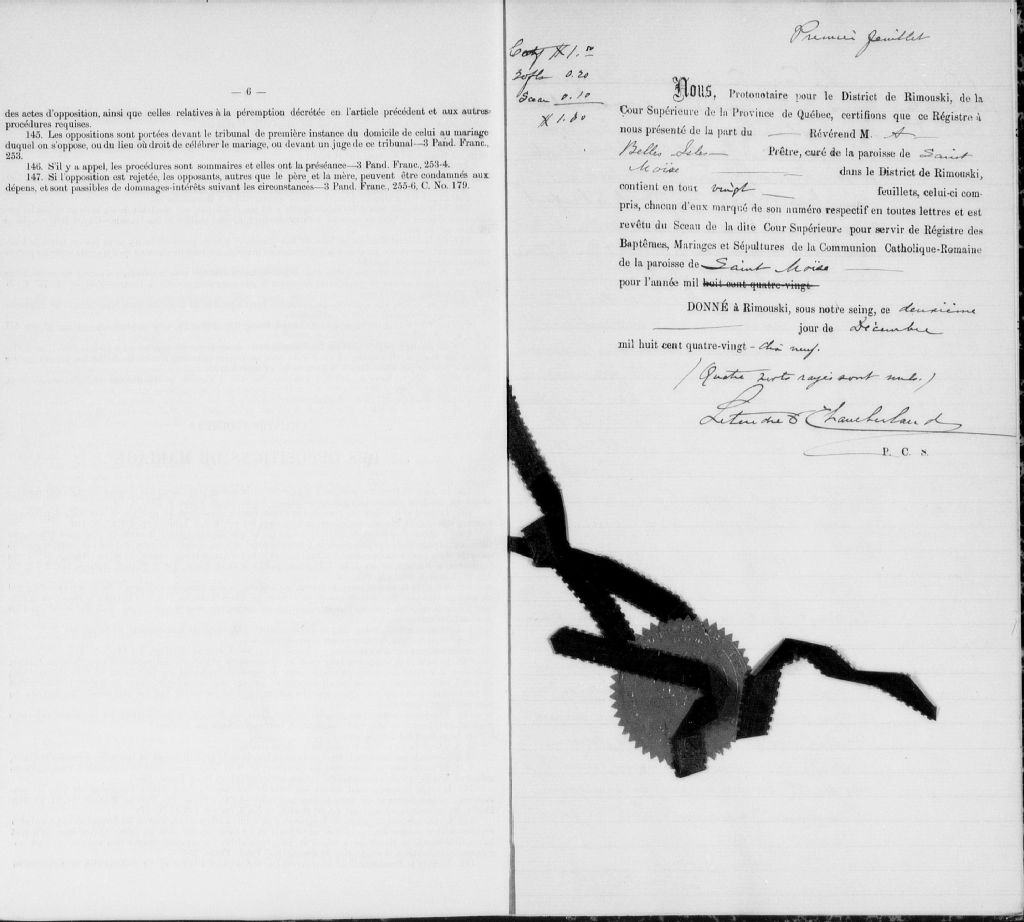 — 6 —
des actes d'opposition, ainsi que celles relatives à la péremption décrétée en l'article précédent et aux autres
procédures requises.
145. Les oppositions sont portées devant le tribunal de première instance du domicile de celui au mariage
duquel on s'oppose, ou du lieu où droit de célébrer le mariage, ou devant un juge de ce tribunal—3 Pand. Franc.,
253.
146. S'il y a appel, les procédures sont sommaires et elles ont la préséance—3 Pand. Franc., 253-4.
147. Si l'opposition est rejetée, les opposants, autres que le père et la mère, peuvent être condamnés aux
dépens, et sont passibles de dommages-intérêts suivant les circonstances—3 Pand. Franc., 255-6, C. No. 179.
Premier feuillet
$1.00
20 fls 0.20
Sceau 0.10
Nous, Protonotaire pour le District de Rimouski, de la
Cour Supérieure de la Province de Québec, certifions que ce Régistre à
nous présenté de la part du — Révérend M. A
Belles Isles — Prêtre, curé de la paroisse de Saint
Moïse — dans le District de Rimouski,
contient en tout vingt — feuillets, celui-ci com-
pris, chacun d'eux marqué de son numéro respectif en toutes lettres et est
revêtu du Sceau de la dite Cour Supérieure pour servir de Régistre des
Baptêmes, Mariages et Sépultures de la Communion Catholique-Romaine
de la paroisse de Saint Moïse —
pour l'année mil huit cent quatre-vingt
DONNÉ à Rimouski, sous notre seing, ce deuxième
— jour de Décembre
mil huit cent quatre-vingt - dix neuf.
(Quatre mots rayés sont nuls.)
Letendre & Chamberland
P. C. S.